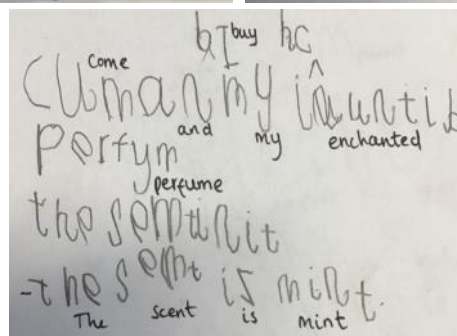 bI buy hc
come
Cuman my inuntib
and my enchanted
Perfym
perfume
the semtinit
-the semt is mint.
The scent is mint